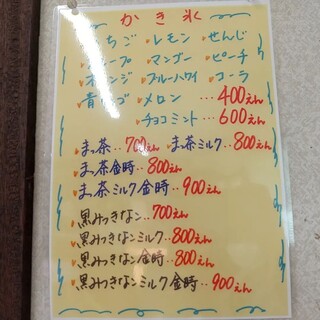 かき氷
いちご レモン せんじ
グレープ マンゴー ピーチ
オレンジ ブルーハワイ コーラ
青りんご メロン …400えん
チョコミント…600えん
まっ茶‥700えん まっ茶ミルク‥800えん
まっ茶金時‥800えん
まっ茶ミルク金時‥900えん
黒みつきなこ‥700えん
黒みつきなこミルク‥800えん
黒みつきなこ金時‥800えん
黒みつきなこミルク金時‥900えん